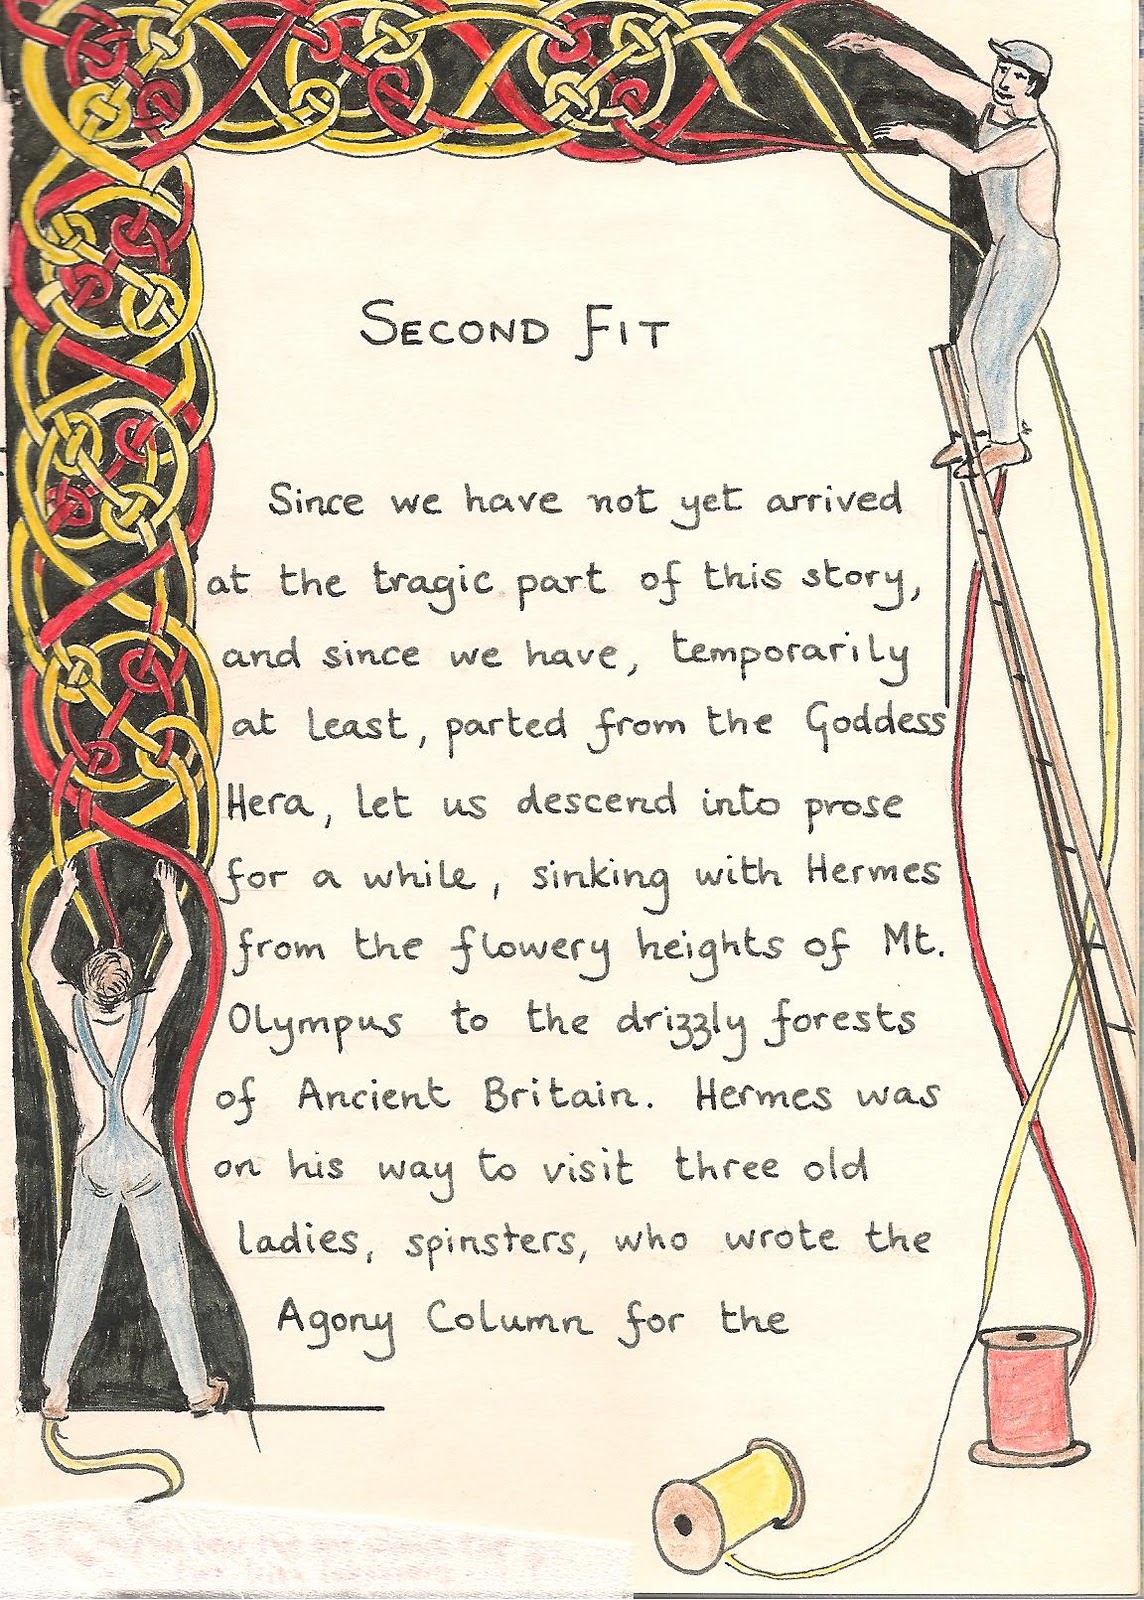 Second Fit
Since we have not yet arrived
at the tragic part of this story,
and since we have, temporarily
at least, parted from the Goddess
Hera, let us descend into prose
for a while, sinking with Hermes
from the flowery heights of Mt.
Olympus to the drizzly forests
of Ancient Britain. Hermes was
on his way to visit three old
ladies, spinsters, who wrote the
Agony Column for the